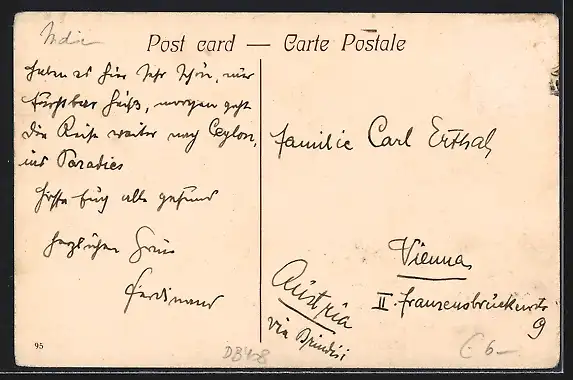 India
Post card — Carte Postale
haben es hier sehr schön, nur
furchtbar heiß, morgen geht
die Reise weiter nach Ceylon,
ins Paradies
hoffe Euch alle gesund
herzlichen Gruss
Ferdinand
Familie Carl Erthal
Vienna
II. Franzensbrückenstr
9
Austria
via Brindisi
95
DB408
€ 6–